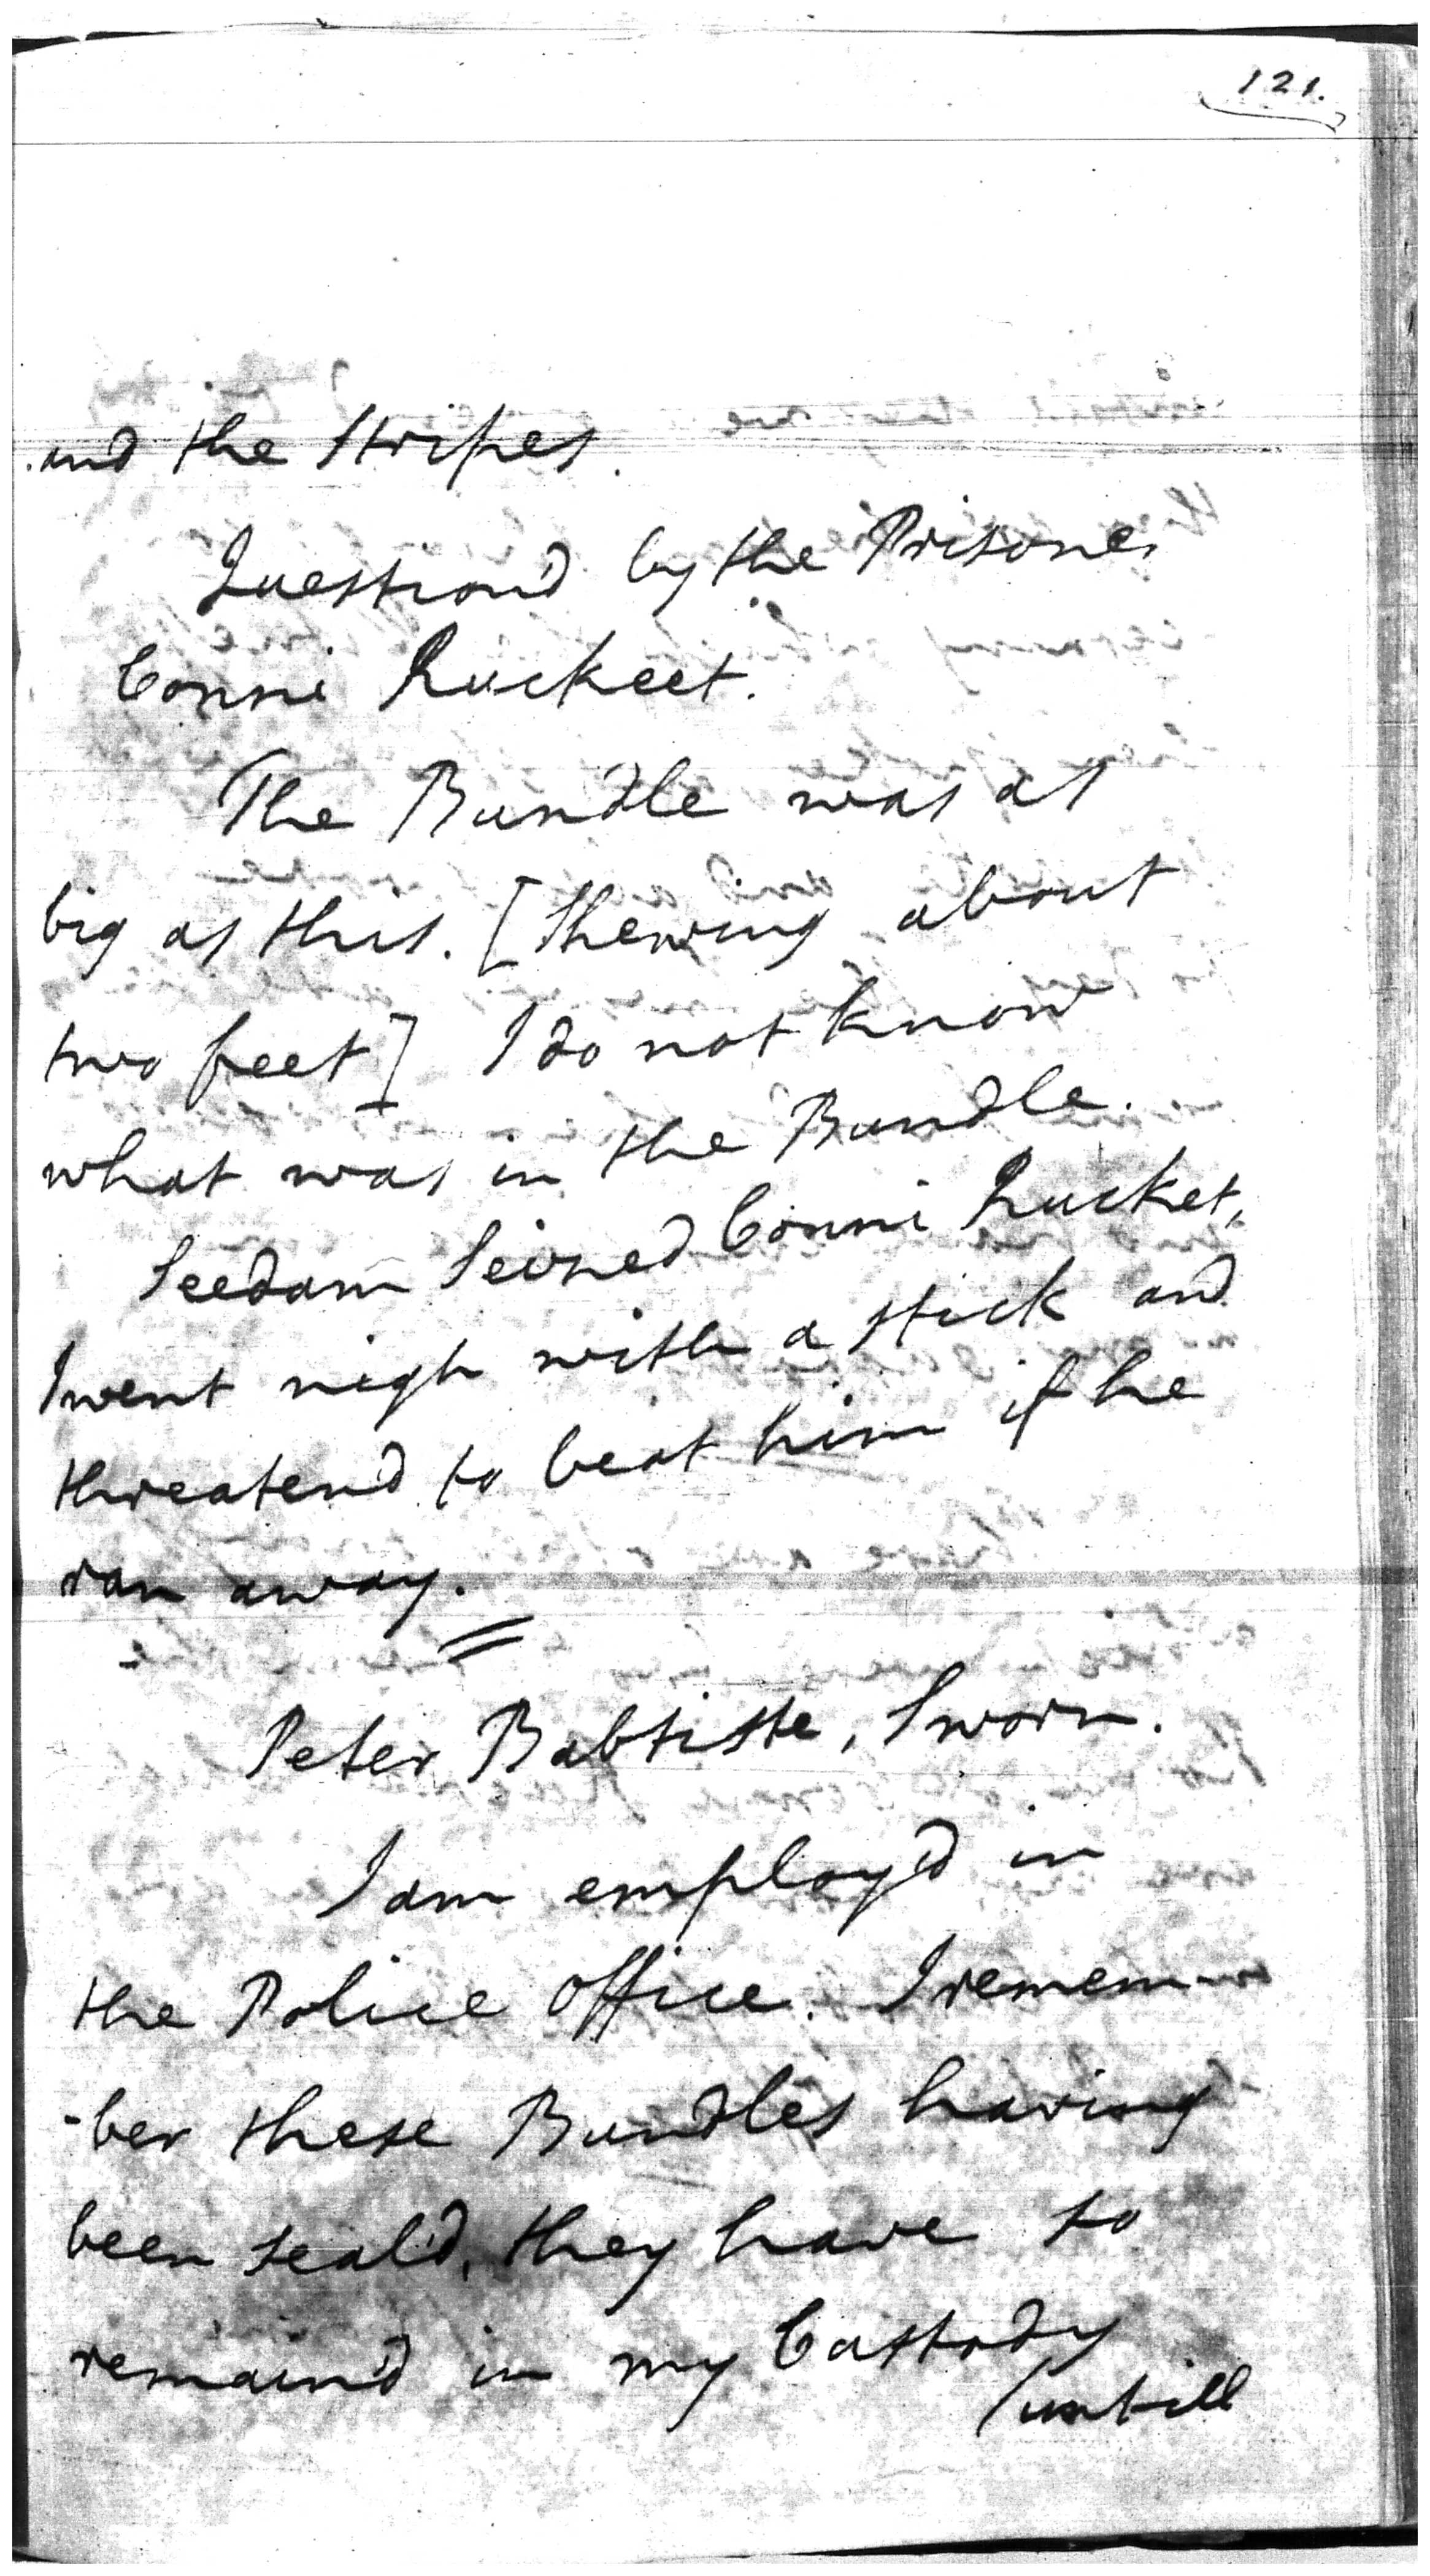 121.
and the Stripes.
Question'd by the Prisoner
Conni Ruckeet.
The Bundle was as
big as this. [Shewing about
two feet] I do not know
what was in the Bundle.
Seedam Seized Conni Rucket,
I went nigh with a stick and
threatend to beat him if he
ran away.
Peter Babtiste, Sworn.
I am employ'd in
the Police Office. I remem-
-ber these Bundles having
been seal'd, they have so
remain'd in my Custody
(untill